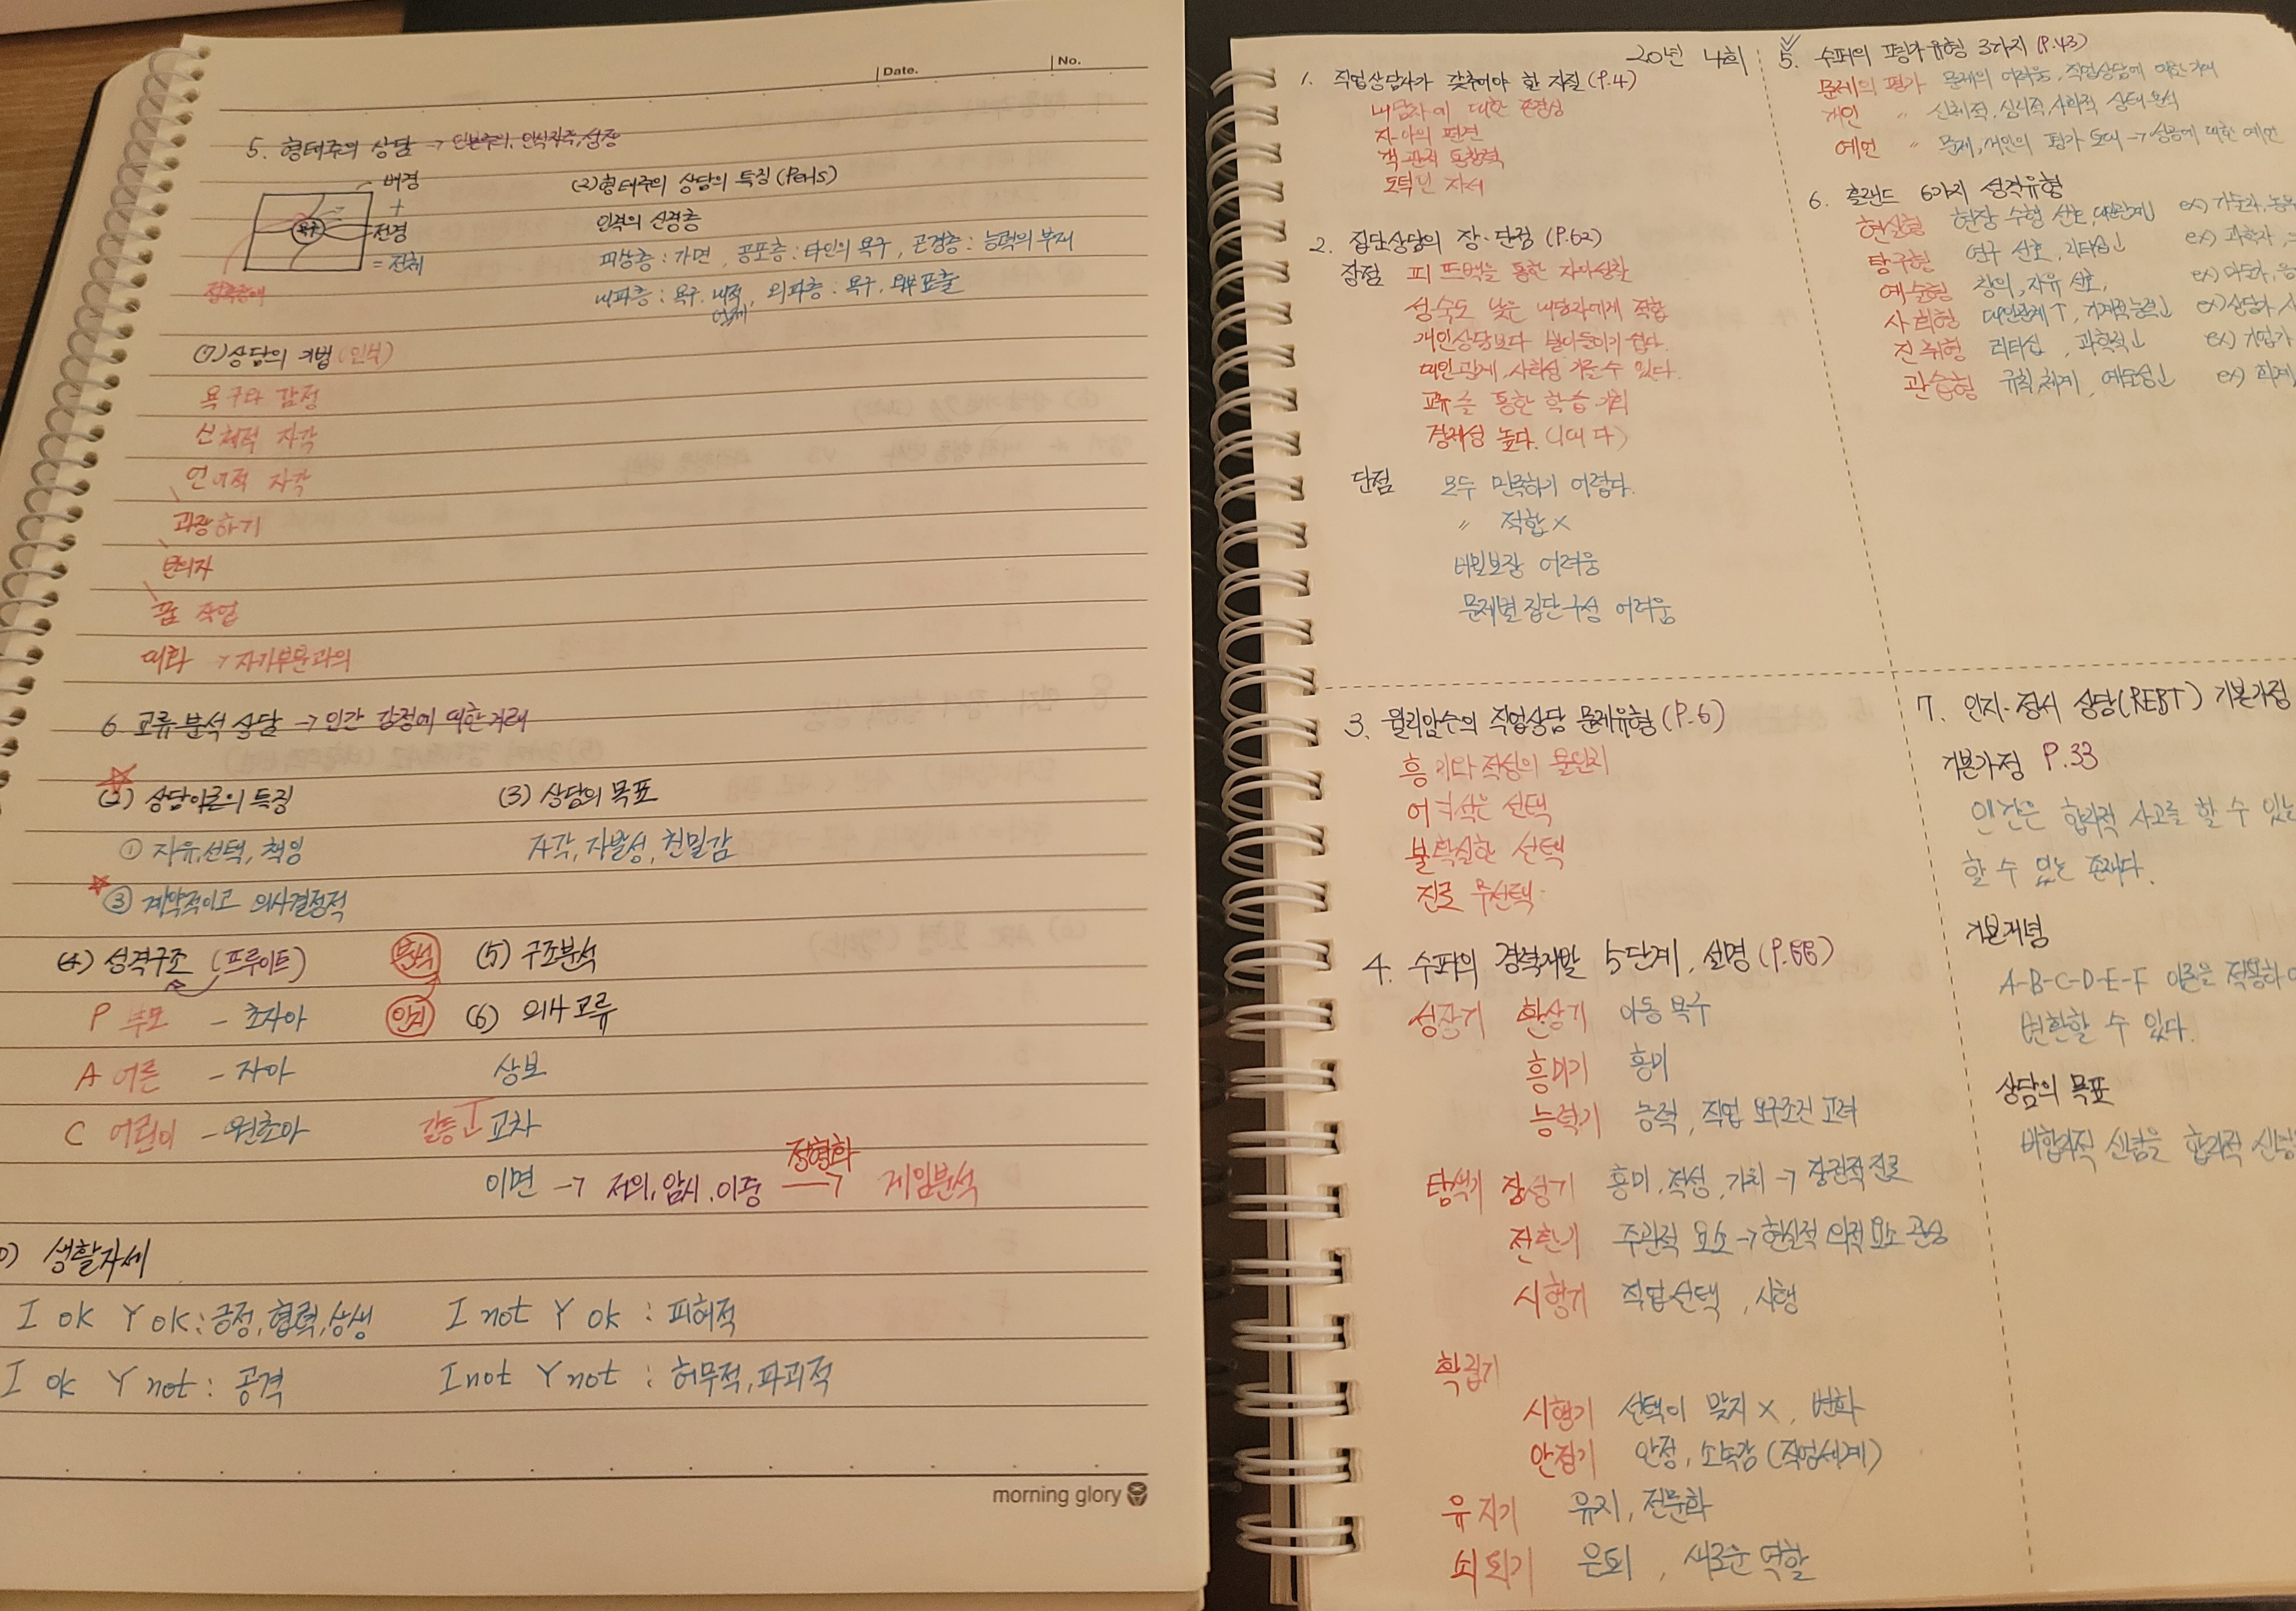 Date.
No.
5. 형태주의 상담 → 인본주의, 인식자주, 성장
배경
+
욕구
전경
= 전체
(2) 형태주의 상담의 특징 (Perls)
인격의 신경층
피상층 : 가면, 공포층 : 타인의 욕구, 곤경층 : 능력의 부재
내파층 : 욕구. 내적, 외파층 : 욕구, 외부표출
억제
(7) 상담의 기법 (인식)
욕구와 감정
신체적 자각
언어적 자각
과장하기
빈의자
꿈 작업
대화 → 자기부분과의
6. 교류분석 상담 → 인간 감정에 대한 거래
(2) 상담이론의 특징
(3) 상담의 목표
① 자유, 선택, 책임
자각, 자발성, 친밀감
③ 계약적이고 의사결정적
(4) 성격구조 (프루이트)
분석 (5) 구조분석
P 부모 - 초자아
인지 (6) 의사교류
A 어른 - 자아
상보
C 어린이 - 원초아
갈등 교차
이면 → 저의, 암시, 이중
정형화
→ 게임분석
생활자세
I ok Y ok : 긍정, 협력, 상생
I not Y ok : 피해적
I ok Y not : 공격
I not Y not : 허무적, 파괴적
morning glory
20년 4회
1. 직업상담자가 갖추어야 할 자질 (P.4)
내담자에 대한 존경심
자아의 편견
객관적 통찰력
도덕인 자세
2. 집단상담의 장·단점 (P.62)
장점 피드백을 통한 자아성찰
성숙도 낮은 내담자에게 적합
개인상담보다 받아들이기 쉽다.
대인관계, 사회성 기를 수 있다.
교류를 통한 학습 기회
경제성 높다. (1대 다)
단점 모두 만족하기 어렵다.
〃 적합 X
비밀보장 어려움
문제별 집단구성 어려움
3. 윌리암슨의 직업상담 문제유형 (P.6)
흥미와 적성의 불일치
어리석은 선택
불확실한 선택
진로 무선택
4. 수퍼의 경력개발 5단계, 설명 (P.66)
성장기 환상기 아동 욕구
흥미기 흥미
능력기 능력, 직업 요구조건 고려
탐색기 잠정기 흥미, 적성, 가치 → 잠정적 진로
전환기 주관적 요소 → 현실적 외적 요소 관심
시행기 직업선택, 시행
확립기
시행기 선택이 맞지 X, 변화
안정기 안정, 소속감 (직업세계)
유지기 유지, 전문화
쇠퇴기 은퇴, 새로운 역할
5. 수퍼의 평가유형 3가지 (P.43)
문제의 평가 문제의 어려움, 직업상담에 대한 기대
개인 〃 신체적, 심리적, 사회적 상태 분석
예언 〃 문제, 개인의 평가 토대 → 성공에 대한 예언
6. 홀랜드 6가지 성격유형
현실형 현장 수행 선호, 대인관계↓ ex) 기술자,
탐구형 연구 선호, 리더십↓ ex) 과학자,
예술형 창의, 자유 선호,
사회형 대인관계↑, 기계적능력↓ ex) 상담가,
진취형 리더십, 과학적↓ ex) 기업가
관습형 규칙체계, 예술성↓ ex) 회계
7. 인지·정서 상담(REBT) 기본가정
기본가정 P.33
인간은 합리적 사고를 할 수 있는
할 수 있는 존재다.
기본개념
A-B-C-D-E-F 이론을 적용하여
변환할 수 있다.
상담의 목표
비합리적 신념을 합리적 신념